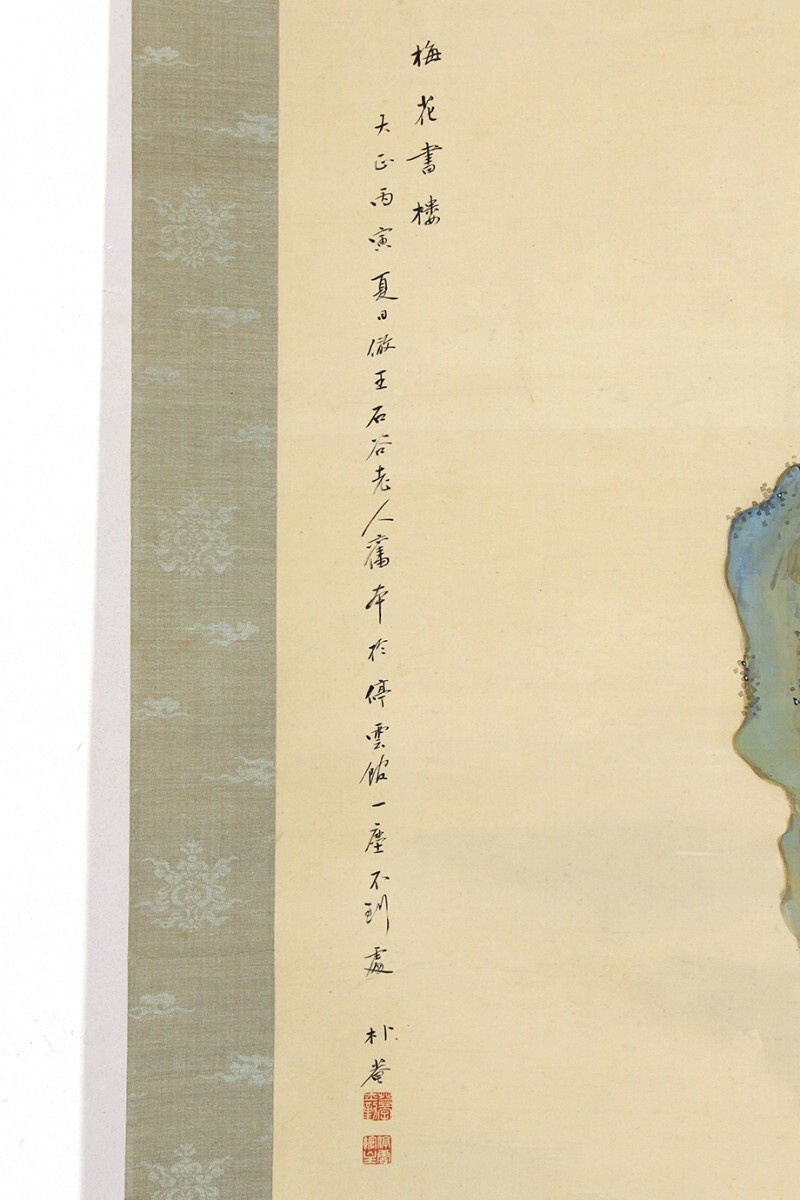 梅花書楼
大正丙寅夏日倣王石谷老人舊本於停雲館一塵不到處
朴菴